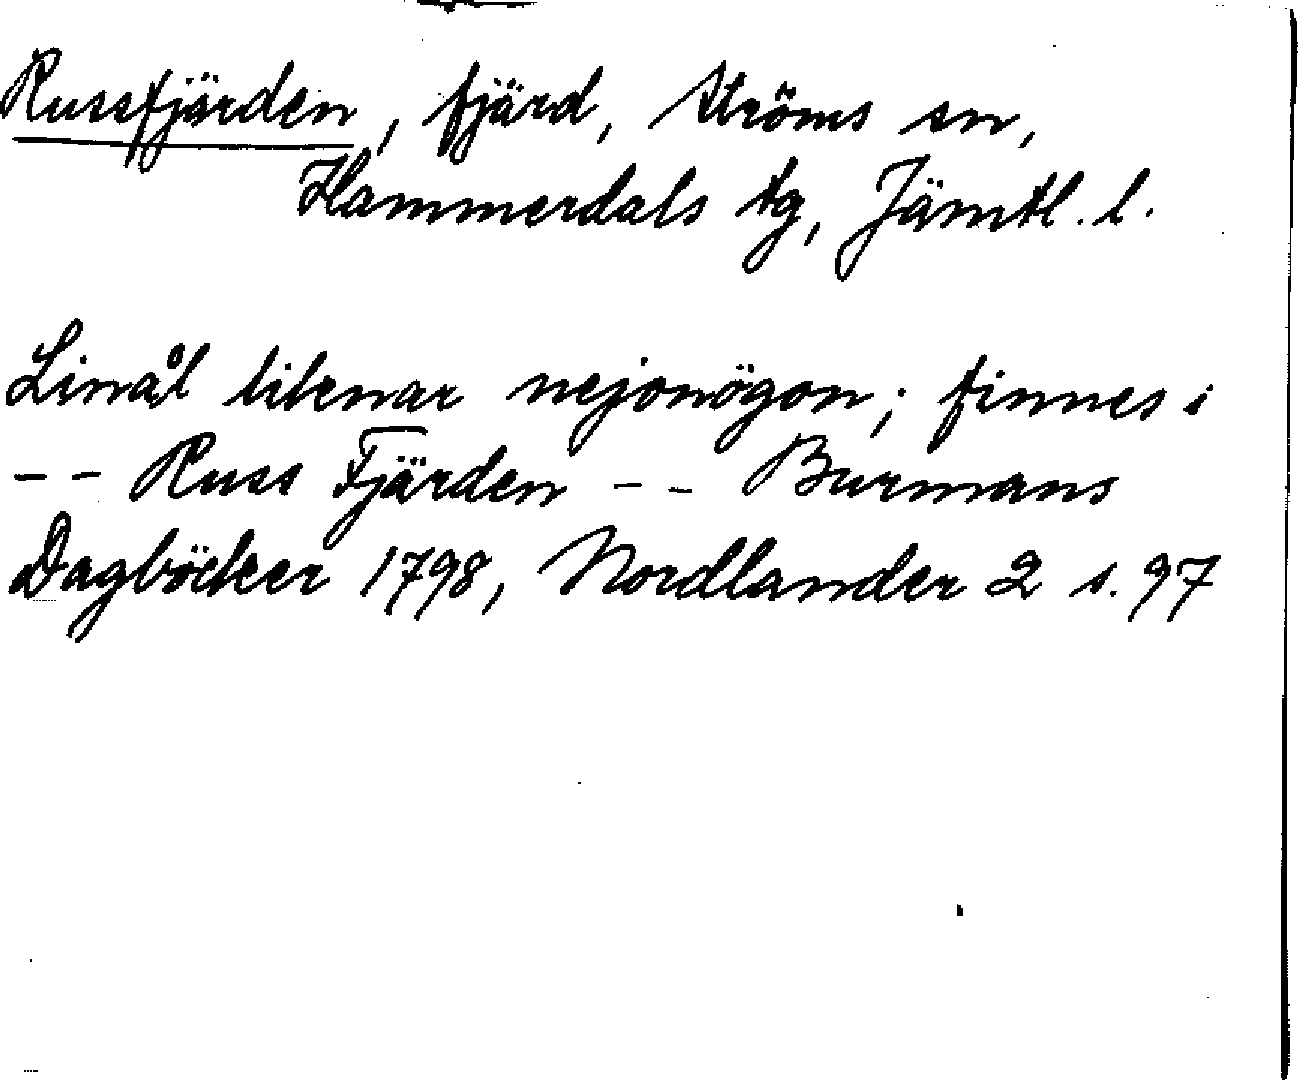 Russfjärden, fjärd, Ströms sn,
Hammerdals tg, Jämtl. l.
Linål liknar nejonögon; finnes i
-- Russ Fjärden -- Burmans
Dagböcker 1798, Nordlander 2 s. 97